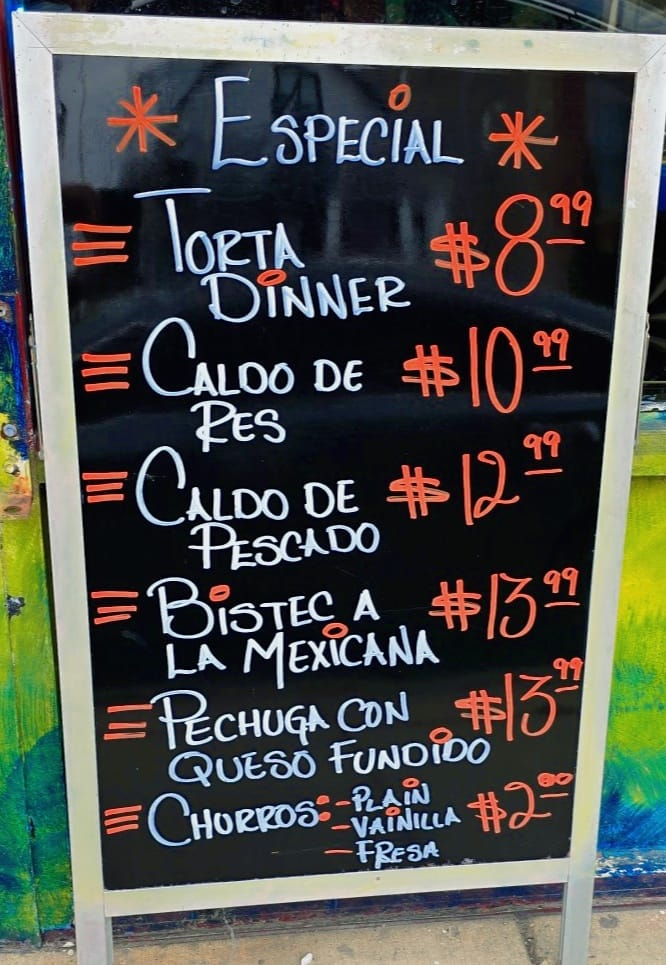 * ESPECIAL *
TORTA $8.99
DINNER
CALDO DE $10.99
RES
CALDO DE $12.99
PESCADO
BISTEC A $13.99
LA MEXICANA
PECHUGA CON $13.99
QUESO FUNDIDO
CHURROS: -PLAIN $2.00
-VAINILLA
-FRESA